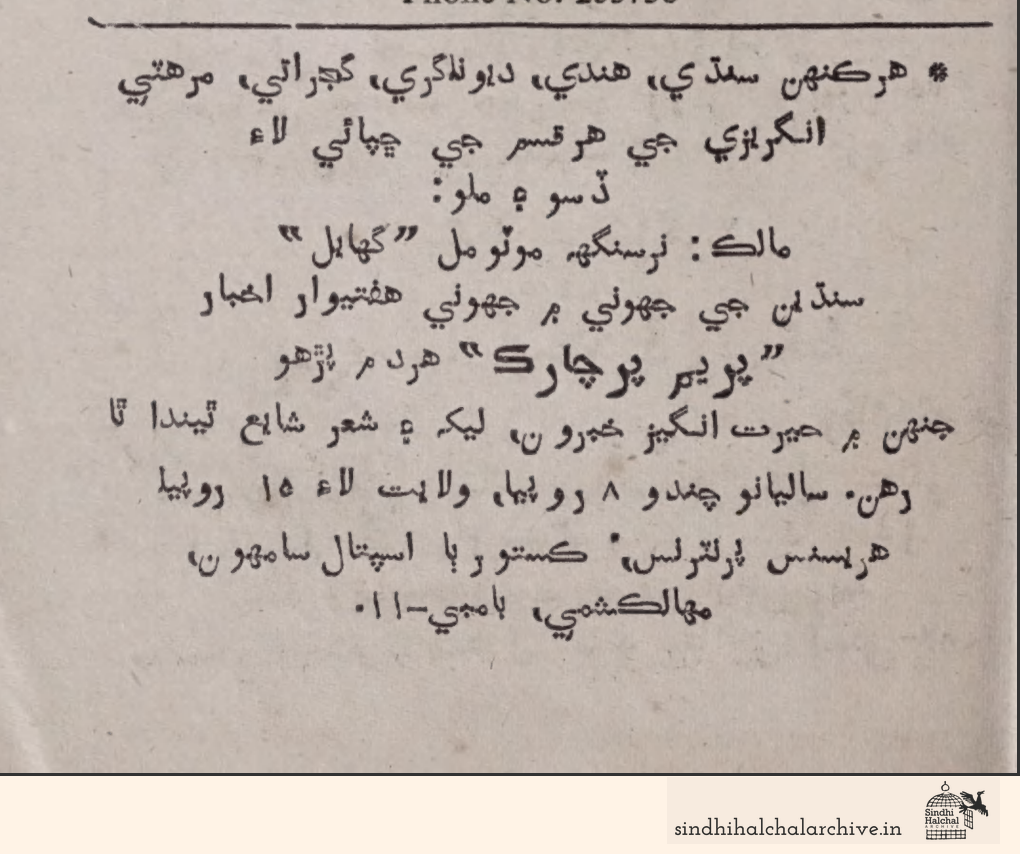 * هرڪنهن سنڌي، هندي، ديوناگري، گجراتي، مرهٽي
انگريزي جي هر قسم جي ڇپائي لاءِ
ڏسو ۽ ملو:
مالڪ: نرسنگهہ موٽومل ”گهايل“
سنڌين جي جهوني ۾ جهوني هفتيوار اخبار
”پريم پرچارڪ“ هردم پڙهو
جنهن ۾ حيرت انگيز خبرون، ليک ۽ شعر شايع ٿيندا ٿا
رهن. ساليانو چندو ۸ روپيا، ولايت لاءِ ۱۵ روپيا
هريسنس پرنٽرس، ڪستوربا اسپتال سامهون،
مهالڪشمي، بامبي–۱۱.
sindhihalchalarchive.in
Sindhi
Halchal
ARCHIVE